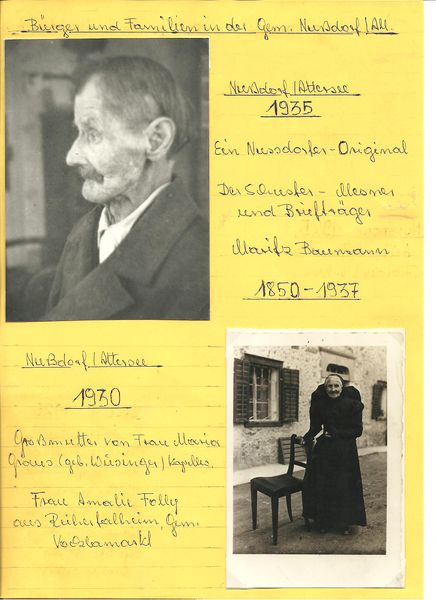 Bürger und Familien in der Gem. Nußdorf/Att.
Nußdorf/Attersee
1935
Ein Nussdorfer-Original
Der Schuster - Mesner
und Briefträger
Moritz Baumann
1850-1937
Nußdorf/Attersee
1930
Großmutter von Frau Maria
(geb. Wüsinger)
Frau Amalie Folly
aus Gem.
Vöcklamarkt